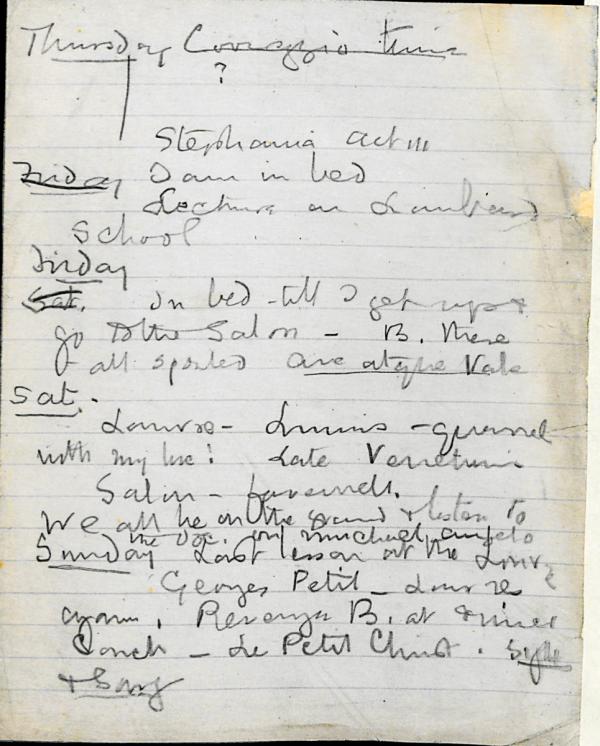 Thursday Correggio time
?
Stephania act III
Friday I am in bed
Lecture on Lombard
School
Friday
Sat. In bed till I get up &
go to the Salon – B. there
all spoiled Ave atque Vale
Sat.
Louvre – Luinis – quarrel
with my luc! Late Venetians
Salon – farewells.
We all lie on the ground & listen to
the Doc. on Michael Angelo
Sunday Last lesson at the Louvre
Georges Petit – Louvre
again. Revenge B. at dinner
Couch – Le Petit Christ.
& Song